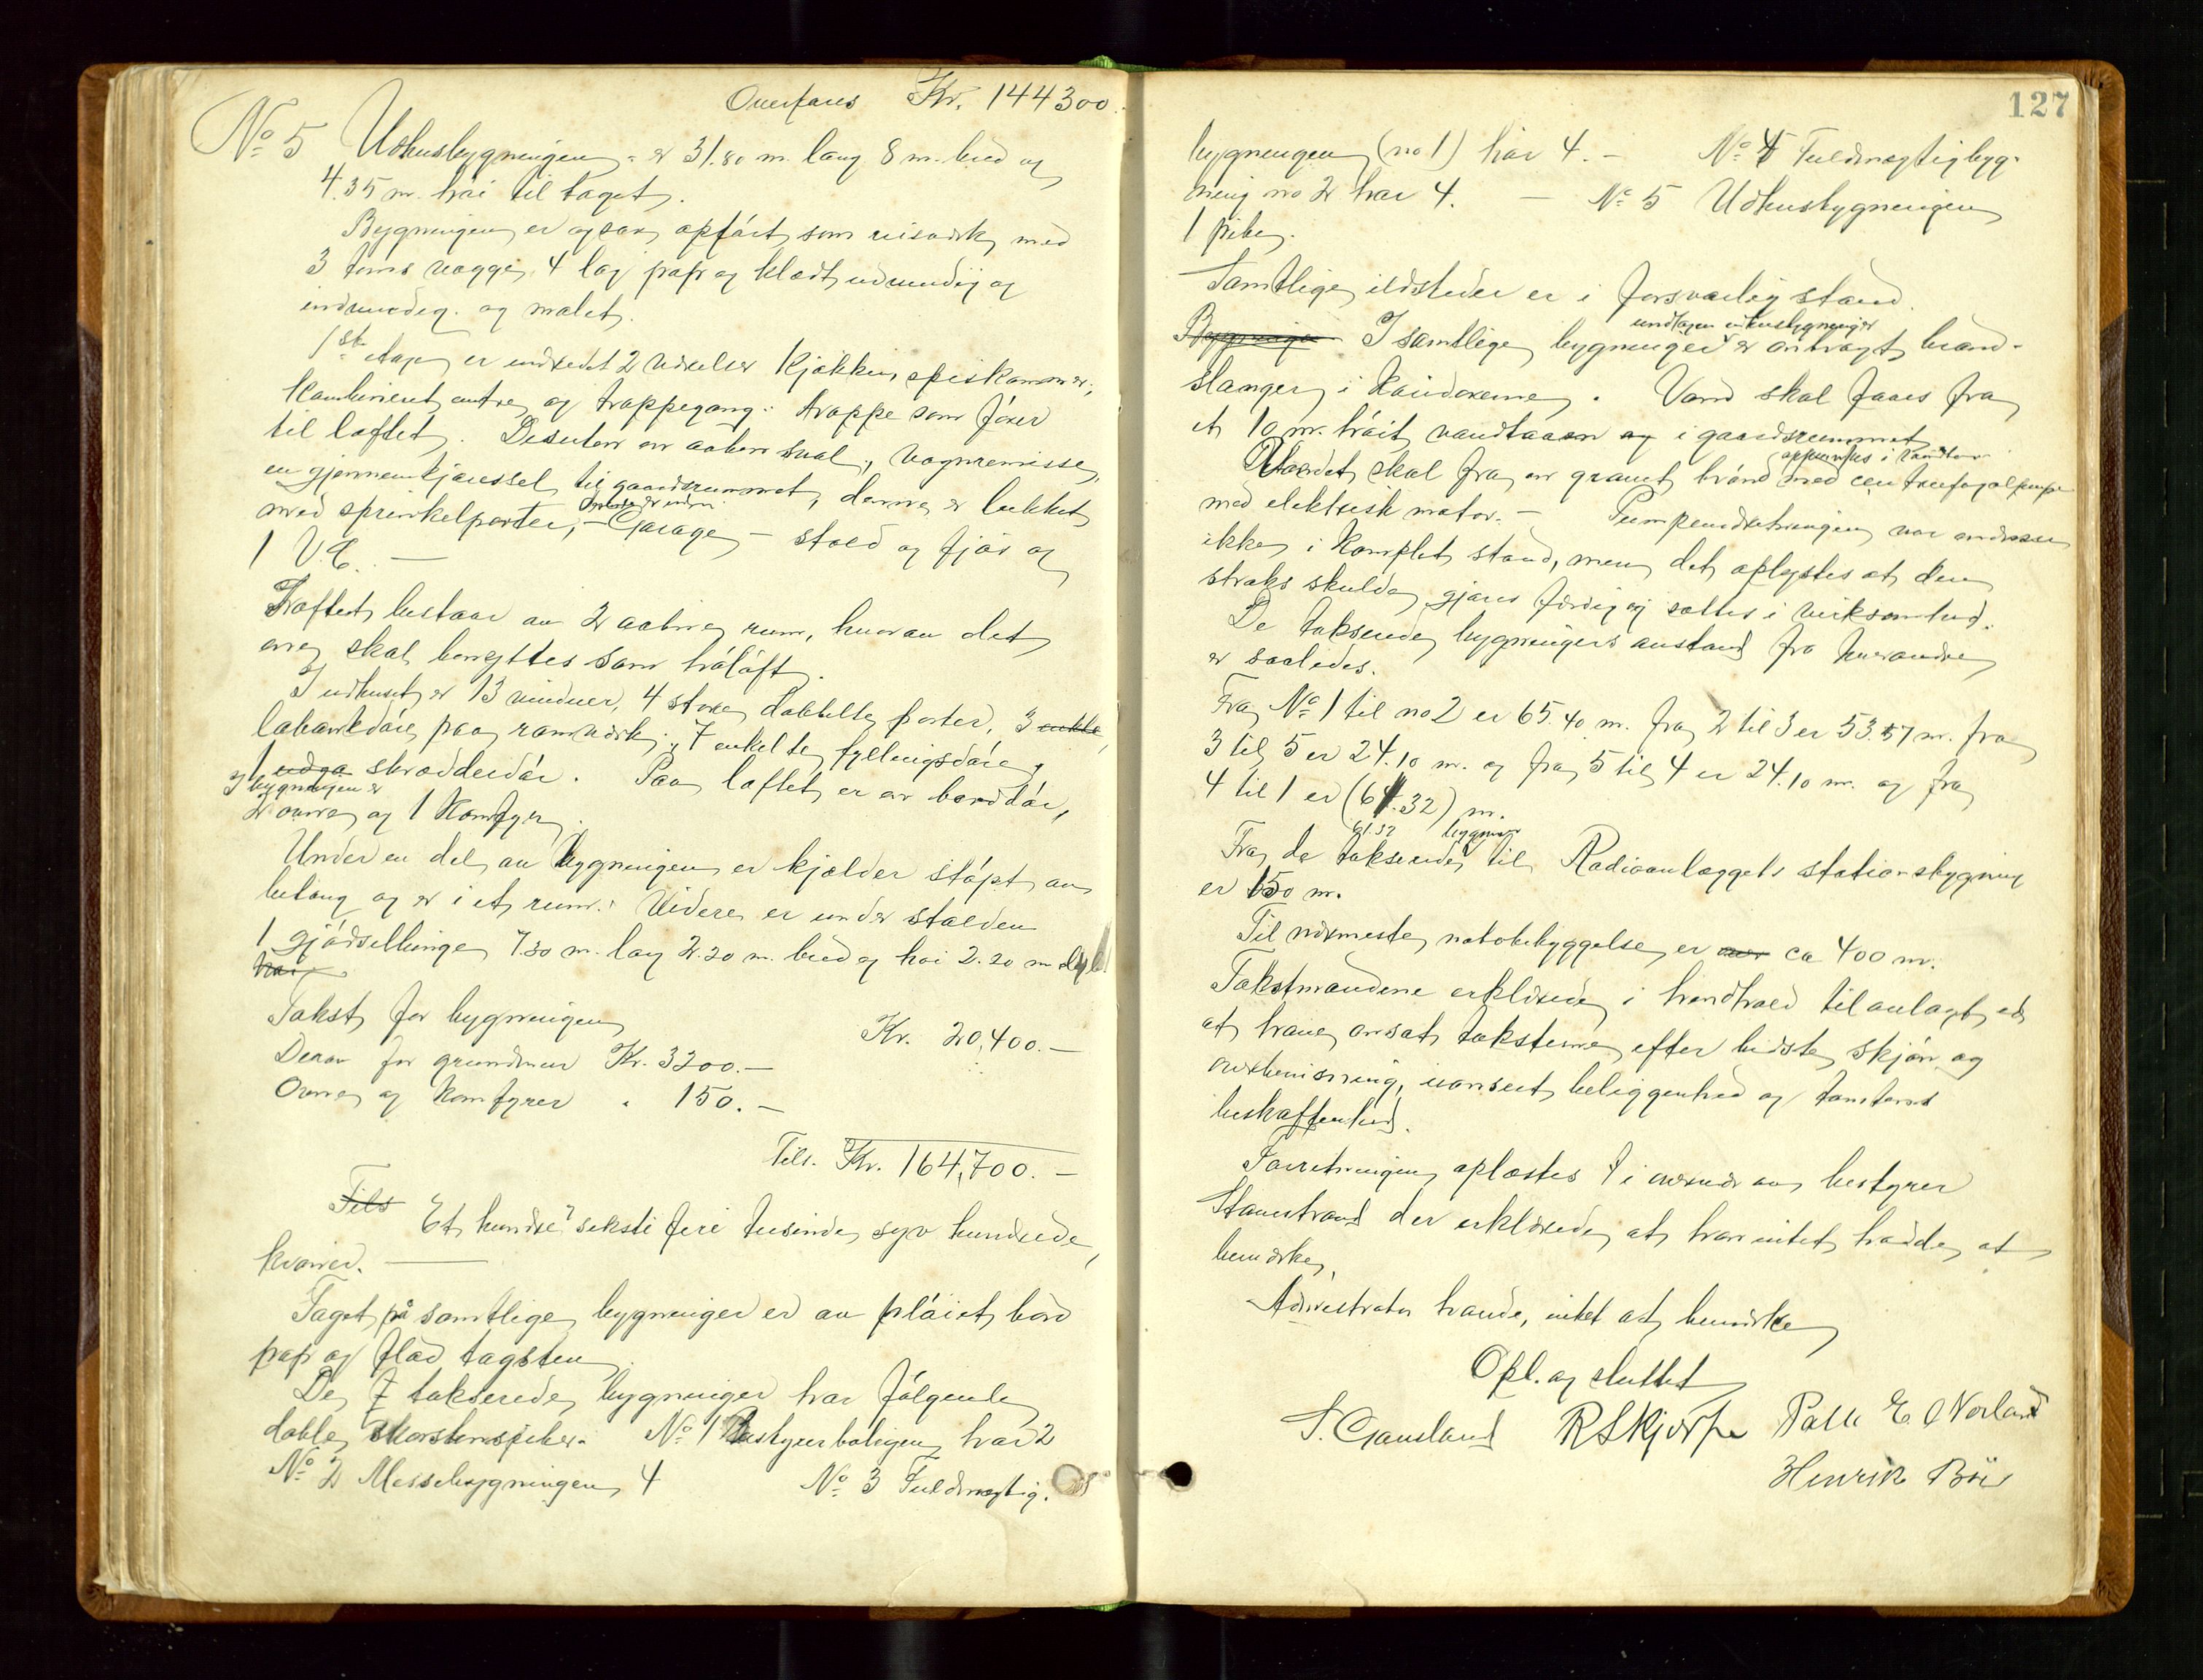 Overføres Kr. 144300.
No 5 Uthusbygningen er 31.80 m. lang 8 m. bred og
4.35 m. høi til taget.
Bygningen er ogsaa opført som reisverk med
3 toms vægge, 4 lag pap og klædt udvendig og
indvendig og malet.
1ste etage er indredet 2 værelser kjøkken, spiskammer,
kombineret entre og trappegang: trappe som fører
til loftet. Desuten en aaben sval, vognremisse,
en gjennemkjørssel til gaardsrummet, denne er lukket
med sprinkelporter, – Garage – stald og fjøs og
1 V.C. —
Loftet bestaar av 2 aabne rum, hvorav det
ene skal benyttes som høløft.
I udhuset er 13 vinduer, 4 store dobbelte porter, 3 enkle
labankdøre paa ramverk, 7 enkelte fyllingsdøre,
1 skrædderdør. Paa loftet er en borddør,
I bygningen er
2 ovne og 1 Komfyr.
Under en del av bygningen er kjælder støpt av
betong og er i et rum. Videre er under stalden
1 gjødselbinge 7.30 m. lang 2.20 m. bred og høi 2.20 m dyb
høi
Takst for bygningen Kr. 20,400.—
Derav for grundmur Kr. 3200.—
Ovne og Komfyrer " 150.—
Tils. Kr. 164,700.—
Tils Et hundre seksti fire tusinde syv hundrede
kroner. —
Taget på samtlige bygninger er av pløiet bord
pap og flad tagsten.
De takserede bygninger har følgende
doble skorstenspiber. No 1 Bestyrerboligen har 2
No 2 Messebygningen 4 No 3 Fuldmægtig.
127
bygningen (no 1) har 4. – No 4 Fuldmægtigbyg-
ning no 2 har 4. – No 5 Udhusbygningen
1 pibe.
Samtlige ildsteder er i forsvarlig stand.
undtagen uthusbygningen
Bygningen I samtlige bygninger er anbragt brand-
slanger i Koridorerne. Vand skal faaes fra
et 10 m. høit vandtaarn og i gaardsrummet
Vandet skal fra en gravet brønd med centrifugalpumpe
med elektrisk motor. – Pumpeindretningen var endnu
ikke i komplet stand, men det oplystes at den
straks skulde gjøres færdig og sættes i virksomhed.
De takserede bygningers avstand fra hverandre
er saaledes.
Fra No 1 til no 2 er 65.40 m. fra 2 til 3 er 53.57 m. fra
3 til 5 er 24.10 m. og fra 5 til 4 er 24.10 m. og fra
4 til 1 er (61.32) m.
61.32 bygninger
Fra de takserede til Radioanlæggets stationsbygning
er 150 m.
Til nærmeste nabobebyggelse er ca 400 m.
Takstmændene erklærede i henhold til avlagt ed
at have ansat taksterne efter bedste skjøn og
overbevisning, uanseet beliggenhed og tomtens
beskaffenhed.
Forretningen oplæstes i overvær av bestyrer
Stavestrand der erklærede at han intet havde at
bemerke.
Administrator havde intet at bemerke
Opl. og sluttet
S. Gausland R Skjørpe Palle E. Norland
Henrik Bøe